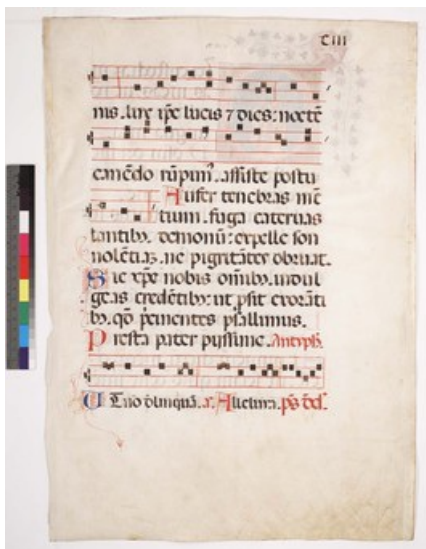 CIII
nis. lux ip̄e lucis ⁊ dies: noctē
canēdo rūpim᷒. assiste postu
Aufer tenebras mē
tium. fuga cateruas
lantibꝫ. demonū: expelle son
nolētiaꝫ. ne pigritātes obruat.
Sic xp̄e nobis om̄ibꝫ. indul
geas credētibꝫ: ut p̄sit exorāti
bꝫ. qđ p̄cinentes psallimus.
Presta pater pijssime. Antyph.
UT nō dlinquā. Alleluia. ps